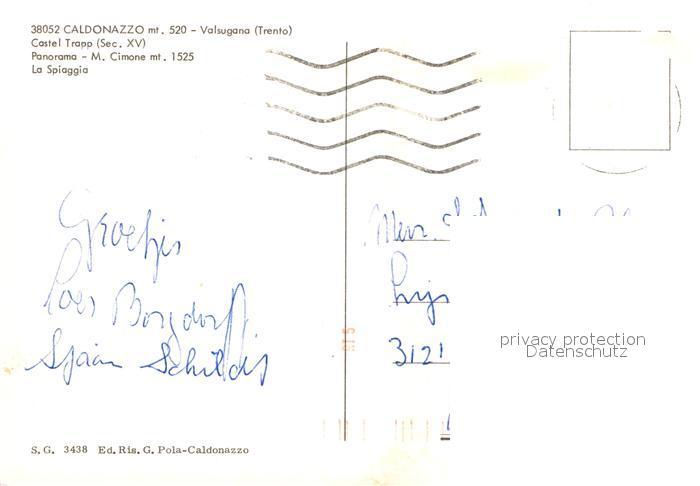 38052 CALDONAZZO mt. 520 – Valsugana (Trento)
Castel Trapp (Sec. XV)
Panorama – M. Cimone mt. 1525
La Spiaggia
Groetjes
Loes Borgdorff
Sjaan Schildis
3121
privacy protection
Datenschutz
S. G. 3438 Ed. Ris. G. Pola-Caldonazzo